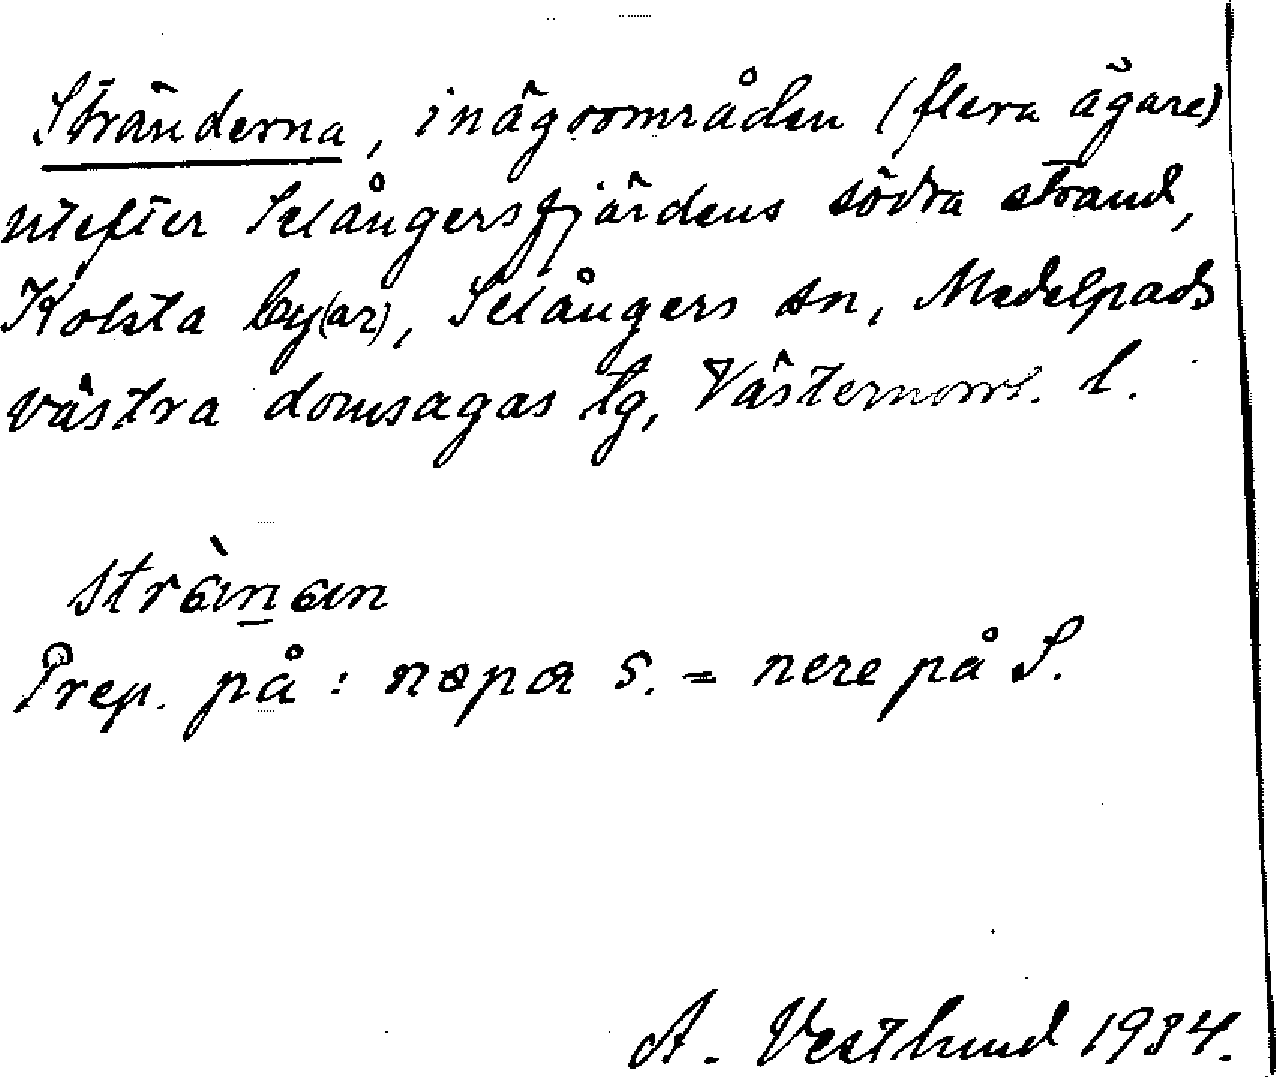 Stränderna, inägoområden (flera ägare)
utefter Selångersfjärdens södra strand,
Kolsta by(ar), Selångers sn, Medelpads
västra domsagas tg, Västernorrl. l.
Prep. på: S. = nere på S.
A. Vestlund 1934.